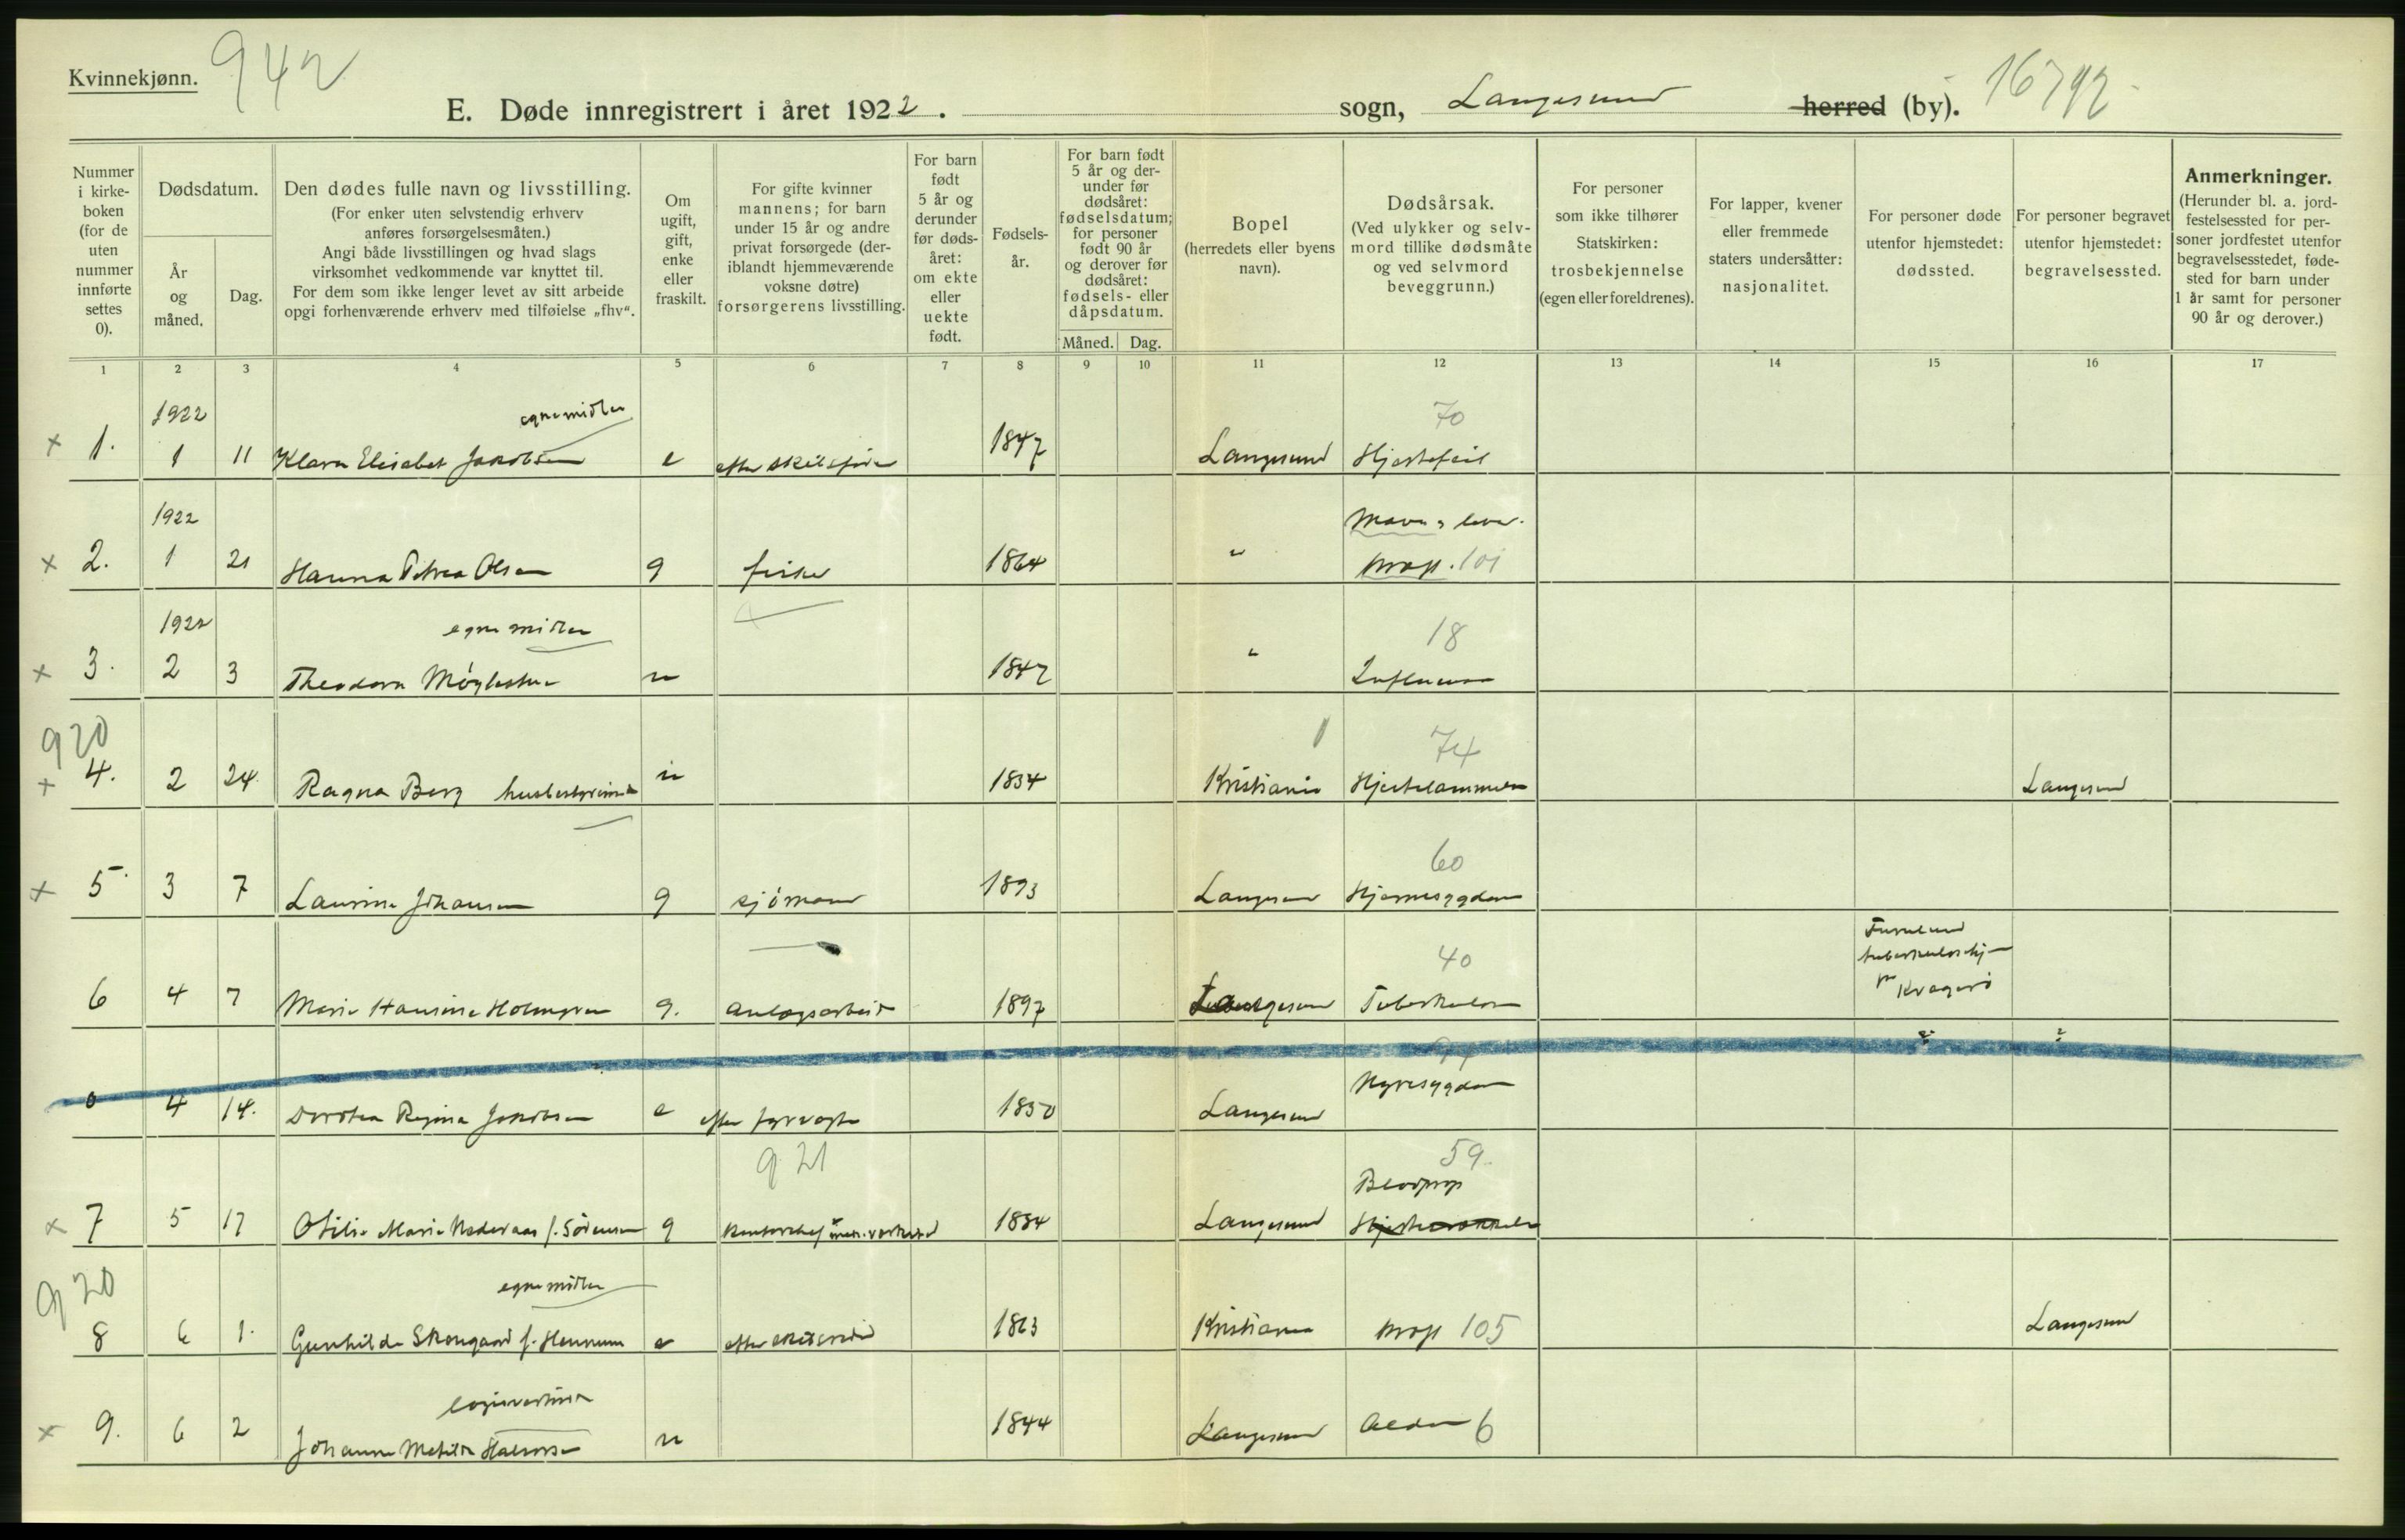 Kvinnekjønn.
942
E. Døde innregistrert i året 1922. sogn, Langesund herred (by).
Nummer i kirke-boken (for de uten nummer innførte settes 0).
Dødsdatum.
År og måned.
Dag.
Den dødes fulle navn og livsstilling.
(For enker uten selvstendig erhverv anføres forsørgelsesmåten.)
Angi både livsstillingen og hvad slags virksomhet vedkommende var knyttet til.
For dem som ikke lenger levet av sitt arbeide opgi forhenværende erhverv med tilføielse „fhv“.
Om ugift, gift, enke eller fraskilt.
For gifte kvinner mannens; for barn under 15 år og andre privat forsørgede (der-iblandt hjemmeværende voksne døtre) forsørgerens livsstilling.
For barn født 5 år og derunder før døds-året: om ekte eller uekte født.
Fødsels-år.
For barn født 5 år og der-under før dødsåret: fødselsdatum; for personer født 90 år og derover før dødsåret: fødsels- eller dåpsdatum.
Måned.
Dag.
Bopel
(herredets eller byens navn).
Dødsårsak.
(Ved ulykker og selv-mord tillike dødsmåte og ved selvmord beveggrunn.)
For personer som ikke tilhører Statskirken: trosbekjennelse (egen eller foreldrenes).
For lapper, kvener eller fremmede staters undersåtter: nasjonalitet.
For personer døde utenfor hjemstedet: dødssted.
For personer begravet utenfor hjemstedet: begravelsessted.
Anmerkninger.
(Herunder bl. a. jord-festelsessted for per-soner jordfestet utenfor begravelsesstedet, føde-sted for barn under 1 år samt for personer 90 år og derover.)
1 2 3 4 5 6 7 8 9 10 11 12 13 14 15 16 17
1922 egne midler 70
x 1. 1 11 Klara Elisabet Jakobsen e efter skibsfører 1847 Langesund Hjertefeil
1922 Mave og lever.
x 2. 1 21 Hanna Petrea Olsen g fisker 1864 " 101
1922 egne midler 18
x 3. 2 3 Theodora u 1847 " Influensa
920 74
+ 4. 2 24. Ragna Berg husbestyrerinde u 1854 Kristiania Hjertelammelse Langesund
60
x 5. 3 7 Laurine Johansen g sjømand 1893 Langesund Hjernesygdom
40 tuberkulosehj.
6 4 7 Marie Hansine Holmgren g. anlægsarbeid 1897 Langesund Tuberkulose Kragerø
0 4 14. Dorthea Regina Jakobsen e efter fyrvogter 1850 Langesund Nyresygdom
921 59. Blodprop
x 7 5 17 Otilie Marie f. Sørensen g 1854 Langesund
920 egne midler
8 6 1. Gunhilde f. e efter 1863 Kristiania 105 Langesund
x 9. 6 2 Johanne Matilde Halvorsen u 1844 Langesund Alder 6